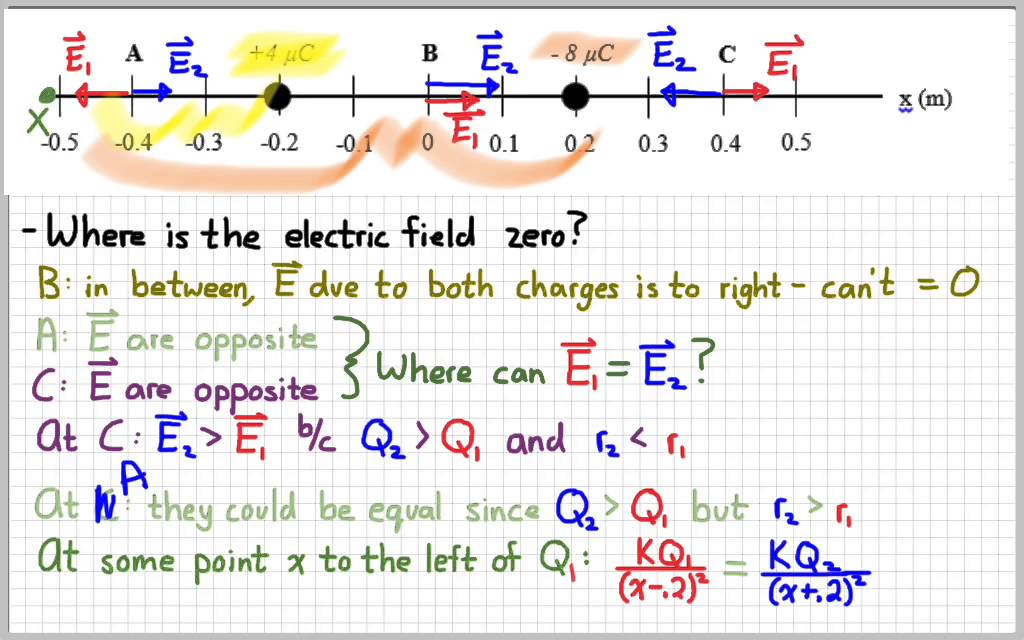 E₁ A E₂ +4 μC B E₂ - 8 μC E₂ C E₁
x (m)
X E₁
-0.5 -0.4 -0.3 -0.2 -0.1 0 0.1 0.2 0.3 0.4 0.5
- Where is the electric field zero?
B: in between, E due to both charges is to right - can't = 0
A: E are opposite
C: E are opposite } Where can E₁ = E₂?
At C: E₂ > E₁ b/c Q₂ > Q₁ and r₂ < r₁
A
At : they could be equal since Q₂ > Q₁ but r₂ > r₁
At some point x to the left of Q₁: KQ₁/(x-.2)² = KQ₂/(x+.2)²